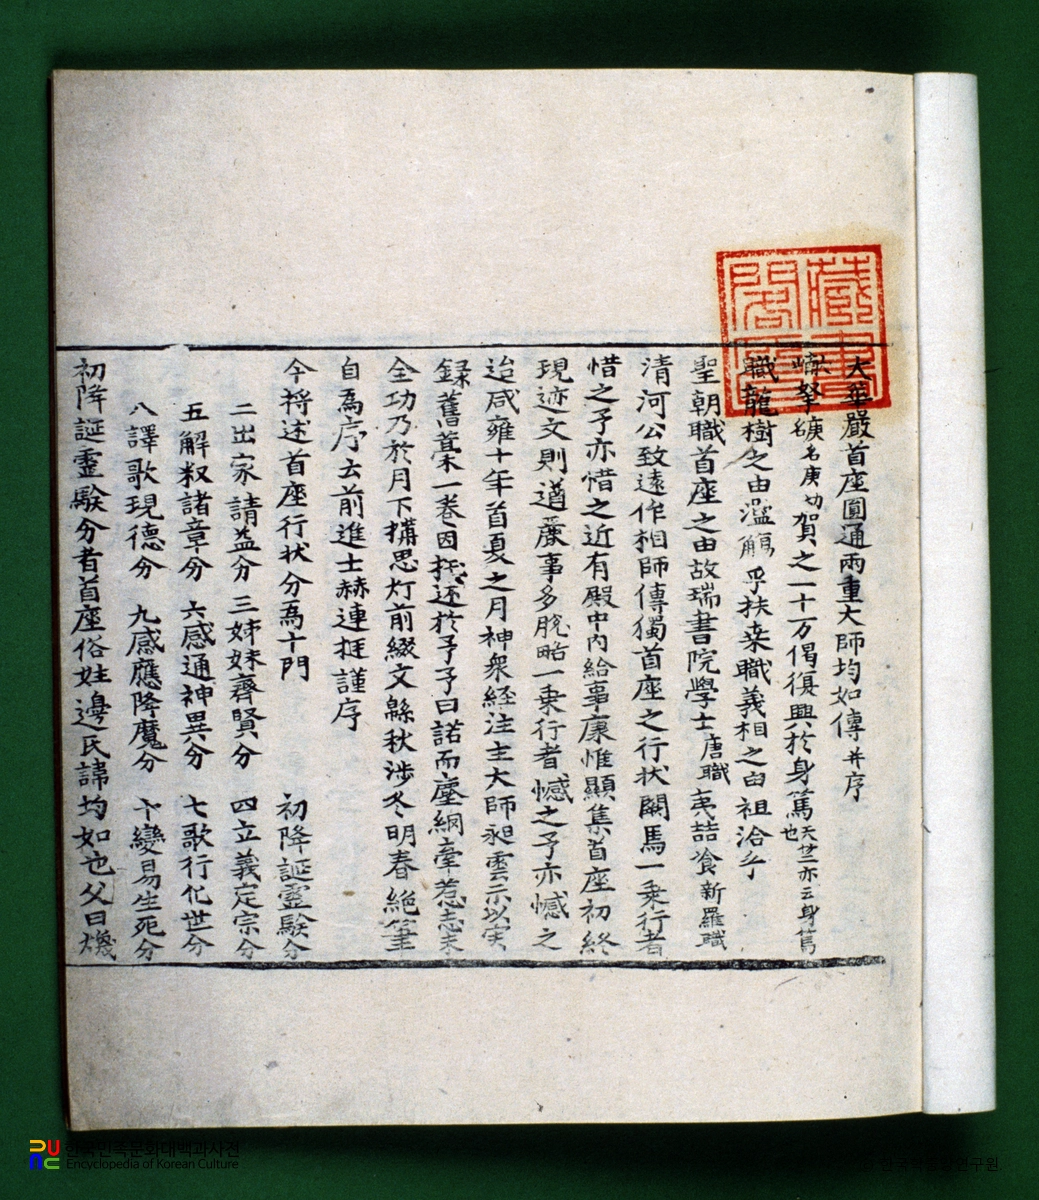 大華嚴首座圓通兩重大師均如傳并序
名庚切賀之一十万偈復興於身篤天竺亦云身篤也
職龍樹之由濫觴乎扶桑職義相之由祖洽乎
聖朝職首座之由故瑞書院學士唐職夷喆飡新羅職
清河公致遠作相師傳獨首座之行状闕焉一乗行者
惜之予亦惜之近有殿中内給事康惟顯集首座初終
現迹文則遒麗事多脫略一乗行者憾之予亦憾之
迨咸雍十年首夏之月神衆経注主大師昶雲示以实
録舊藁一卷因托述於予予曰諾而塵網牽惹志未
全功乃於月下搆思灯前綴文緜秋涉冬明春絶筆
自為序云前進士赫連挺謹序
今将述首座行状分為十門 初降誕霊験分
二出家請益分 三姉妹齊賢分 四立義定宗分
五解釈諸章分 六感通神異分 七歌行化世分
八譯歌現德分 九感應降魔分 十變易生死分
初降誕霊験分者首座俗姓邊氏諱均如也父曰煥
藏書閣印
한국민족문화대백과사전
Encyclopedia of Korean Culture